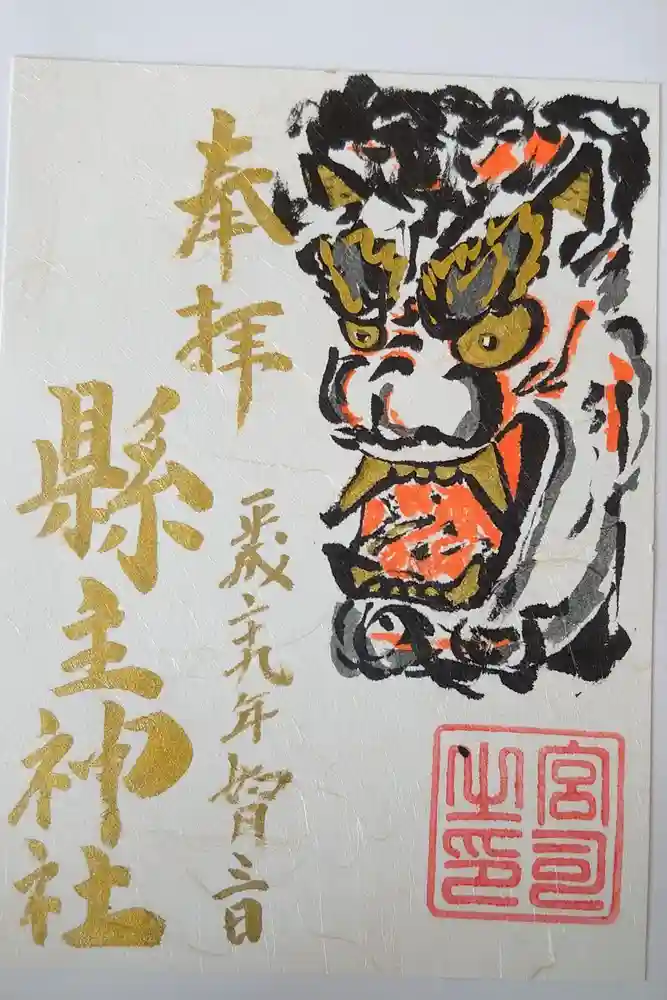 奉拝
平成二十九年
三日
縣主神社
宮司之印